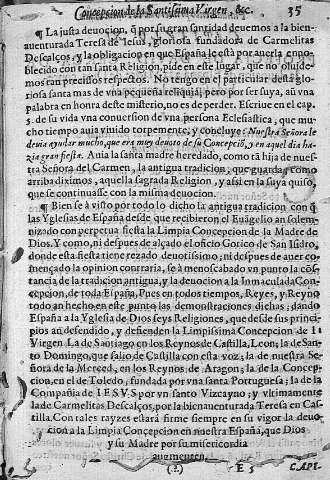 Concepcion de la Santissima Virgen, &c. 35
¶ La justa deuocion, q̃ por su gran santidad deuemos a la bien-
auenturada Teresa de Iesus, gloriosa fundadora de Carmelitas
Descalços, y la obligacion en que España le està por auerla enno-
blecido con tan santa Religion, pide en este lugar, que no oluide-
mos tan precissos respectos. No tengo en el particular desta glo-
riosa santa mas de vna pequeña reliquia; pero por ser suya, aũ vna
palabra en honra deste misterio, no es de perder. Escriue en el cap.
5. de su vida vna conuersion de vna persona Eclesiastica, que mu-
cho tiempo auia viuido torpemente, y concluye: Nuestra Señora le
deuia ayudar mucho, que era muy deuoto de su Concepcion, y en aquel dia ha-
zia gran fiesta. Auia la santa madre heredado, como tã hija de nues-
tra Señora del Carmen, la antigua tradicion, que guarda, como
arriba diximos, aquella sagrada Religion, y assi en la suya quiso,
que se continuasse con la misma deuocion.
¶ Bien se à visto por todo lo dicho la antigua tradicion, con q̃
las Yglesias de España desde que recibieron el Euãgelio an solem-
nizado con perpetua fiesta la Limpia Concepcion de la Madre de
Dios. Y como, ni despues de alçado el oficio Gotico de San Isidro,
donde esta fiesta tiene rezado deuotissimo; ni despues de auer co-
mençado la opinion contraria, se à menoscabado vn punto la cõs-
tancia de la tradicion antigua, y la deuocion a la Inmaculada Con-
cepcion, de toda España. Pues en todos tiempos, Reyes, y Reyno
todo an hecho en este punto las demostraciones dichas; dando
España a la Yglesia de Dios seys Religiones, que desde sus princi-
pios an defendido, y defienden la Limpissima Concepcion de la
Virgen. La de Santiago en los Reynos de Castilla, Leon; la de San-
to Domingo, que salio de Castilla con esta voz; la de nuestra Se-
ñora de la Merced, en los Reynos de Aragon; la de la Concep-
cion, en el de Toledo, fundada por vna santa Portuguesa; la de la
Compañia de IESVS por vn santo Vizcayno; y vltimamente
la de Carmelitas Descalços, por la bienauenturada Teresa en Cas-
tilla. Con tales rayzes estarà firme siempre en su vigor la deuo-
cion a la Limpia Concepcion en nuestra España, que Dios
y su Madre por su misericordia
aumenten.
E 3 CAPI-